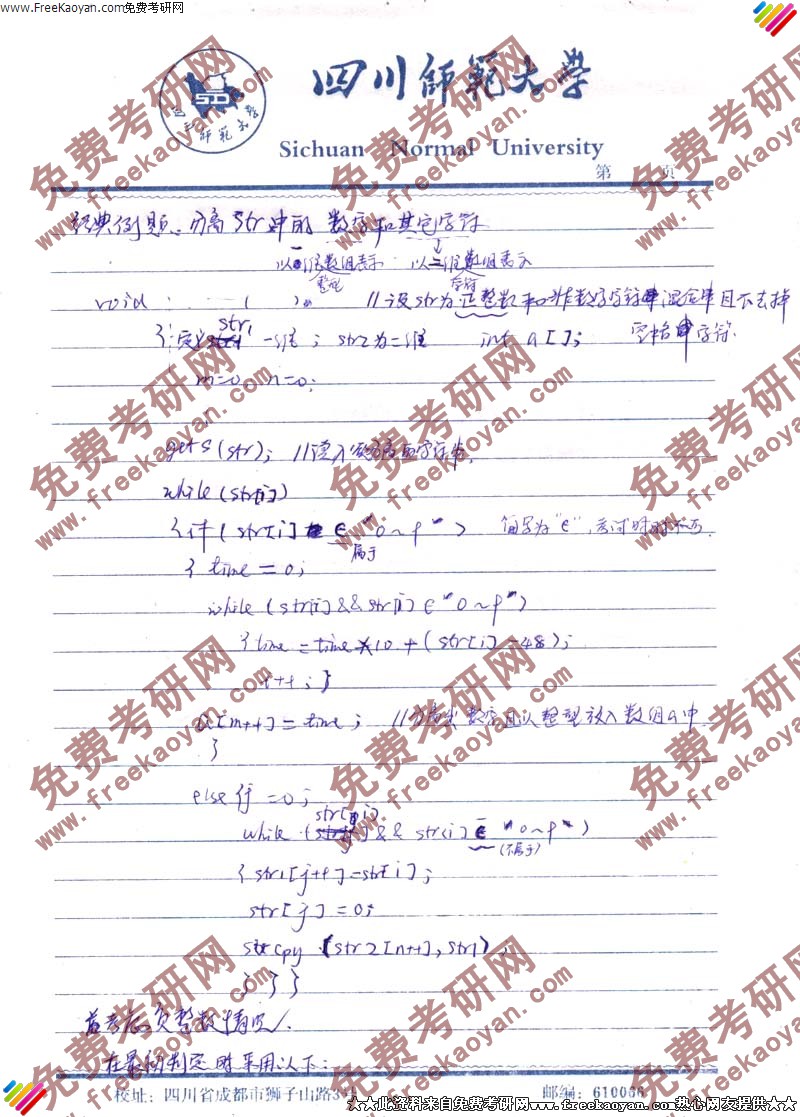 www.FreeKaoyan.com免费考研网
四川師範大学
Sichuan Normal University
第 页
经典例题、分离str中的数字和其它字符
以一维数组表示 以二维数组表示
整型 字符
void ( ) //设str为正整数和非数字字符串混合串且不去掉
空格字符.
{定义str1一维; str2为二维 int a[];
m=0 n=0;
gets(str); //读入
while(str[i])
{if(str[i] ∈ "0~9") 简写为"∈", 考试时
属于
{time=0;
while(str[i]&&str[i]∈"0~9")
{time=time×10+(str[i]-48);
i++;}
a[m++]=time; //分离出数字且以整型放入数组a中
}
else {j=0;
while(str[i]&& str[i] ∈ "0~9")
(不属于)
{str1[j++]=str[i];
str[j]=0;
strcpy(str2[n++],str1);
} } }
若考虑负整数情况.
在最初判定时采用以下:
校址: 四川省成都市狮子山路3号 邮编: 610066
★★此资料来自免费考研网www.freekaoyan.com热心网友提供★★
免费考研网
www.freekaoyan.com